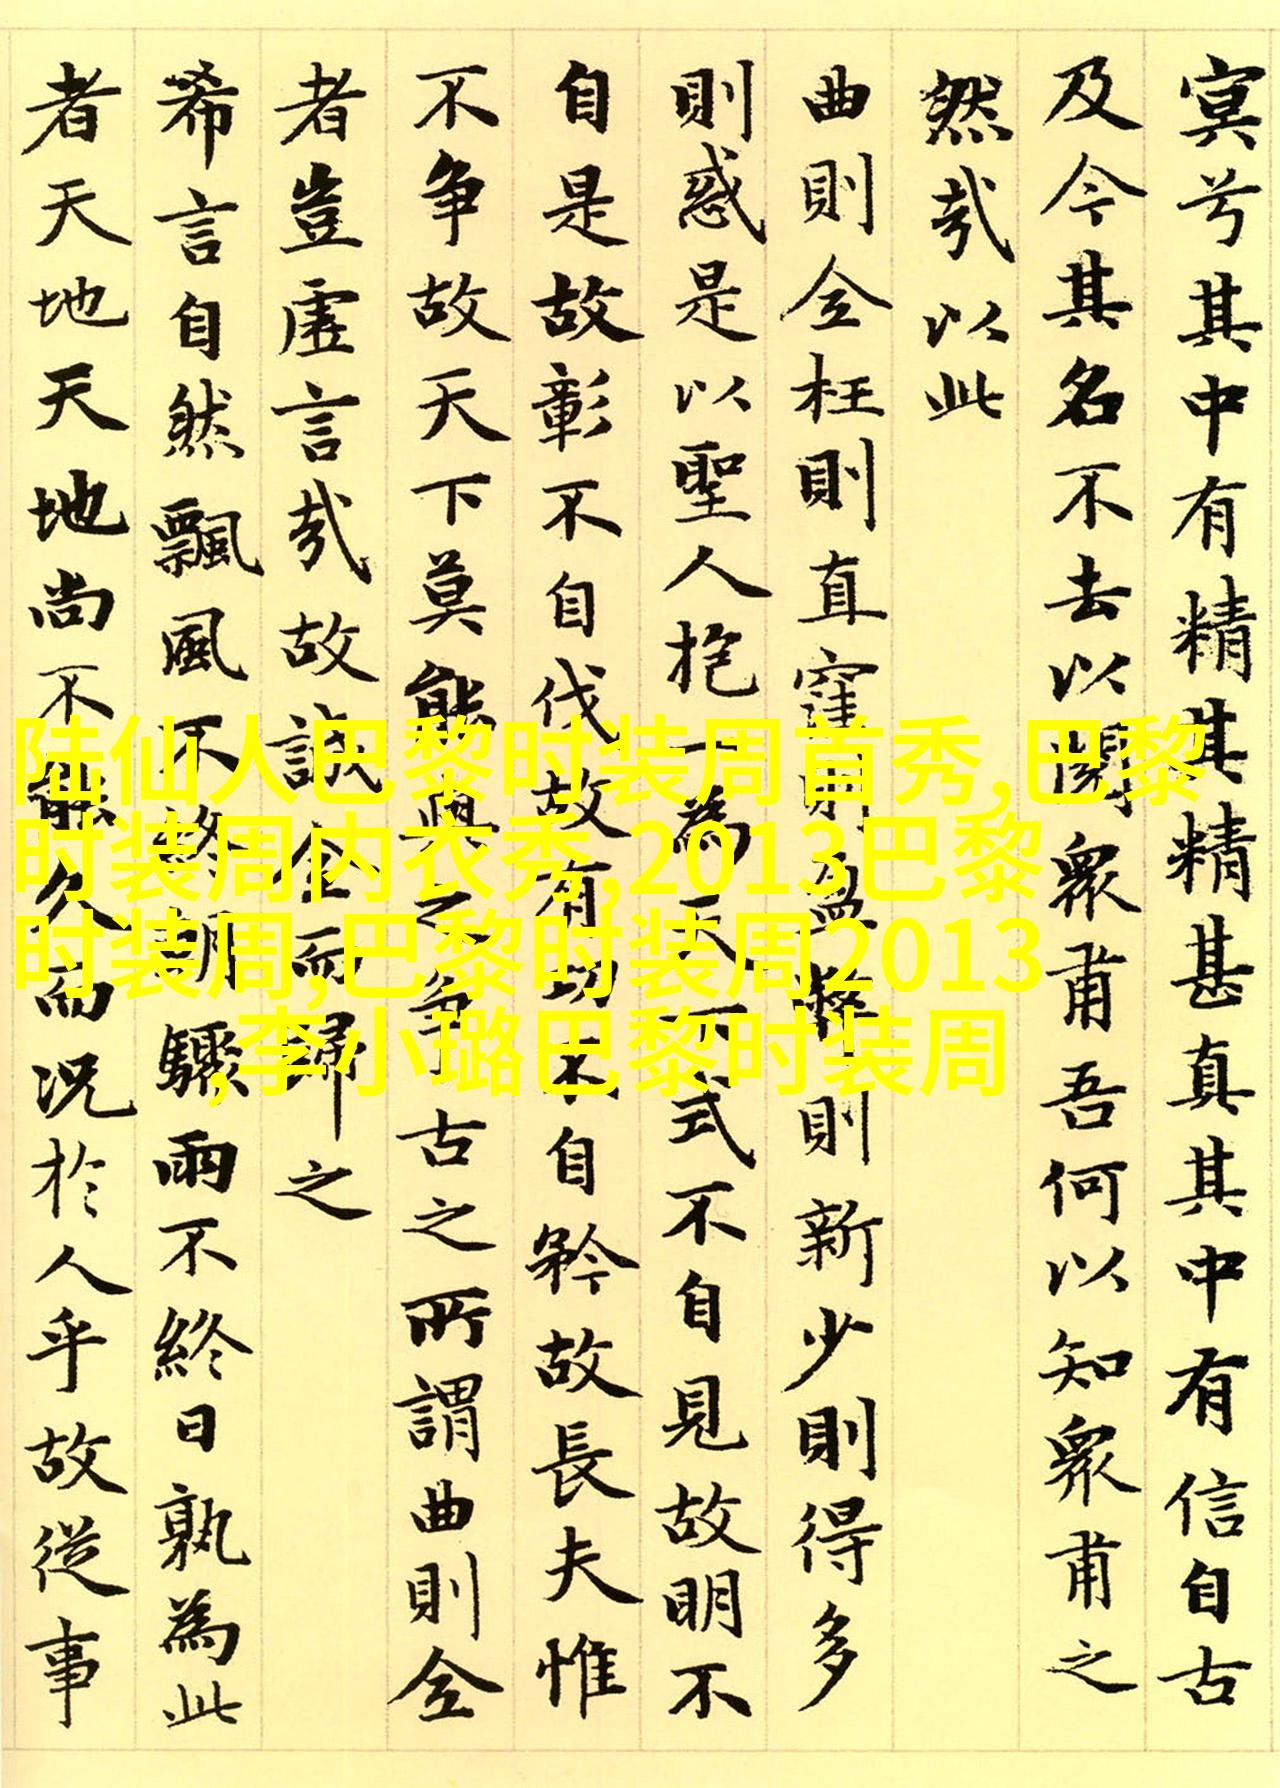 冥兮其中有精其精甚真其中有信自古
及今其名不去以閱衆甫吾何以知衆甫之
然哉以此
曲則全枉則直窪則盈弊則新少則得多
則惑是以聖人抱一為天下式不自見故明不
自是故彰不自伐故有功不自矜故長夫惟
不争故天下莫能與之争古之所謂曲則全
者豈虛言哉故誠全而歸之
希言自然飄風不終朝驟雨不終日孰為此
者天地天地尚不能久而况於人乎故從事
陆仙人巴黎时装周首秀,巴黎
时装周内衣秀,2013巴黎
时装周,巴黎时装周2013
,李小璐巴黎时装周